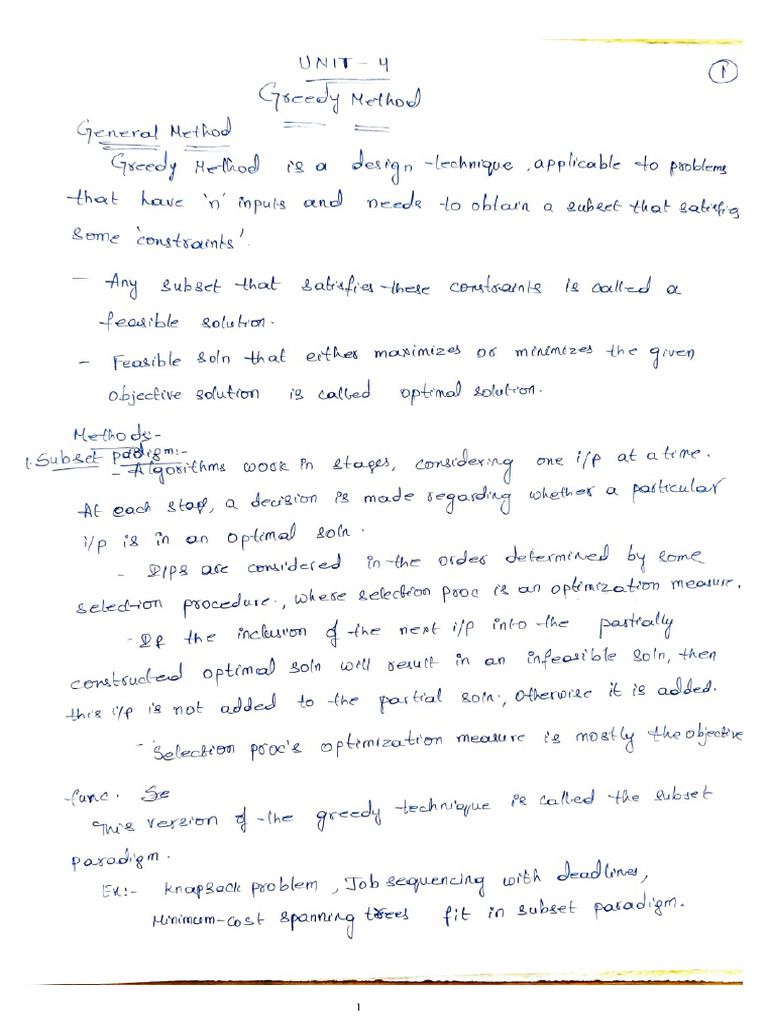 UNIT - 4
1
Greedy Method
General Method
Greedy Method is a design technique, applicable to problems
that have 'n' inputs and needs to obtain a subset that satisfies
some 'constraints'.
- Any subset that satisfies these constraints is called a
feasible solution.
- Feasible soln that either maximizes or minimizes the given
objective solution is called optimal solution.
Methods:-
1. Subset padigm:-
- Algorithms work in stages, considering one i/p at a time.
At each stage, a decision is made regarding whether a particular
i/p is in an optimal soln.
- I/PS are considered in the order determined by some
selection procedure., where selection proc is an optimization measure.
- If the inclusion of the next i/p into the partially
constructed optimal soln will result in an infeasible soln, then
this i/p is not added to the partial soln., otherwise it is added.
- Selection proc's optimization measure is mostly the objective
func. Se
This version of the greedy technique is called the subset
paradigm.
Ex:- Knapsack problem, Job sequencing with deadlines,
Minimum-cost spanning trees fit in subset paradigm.
1